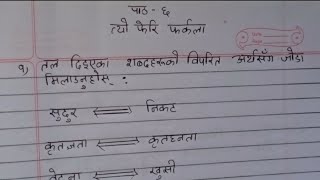 पाठ - ६
त्यो फेरि फर्कला
१) तल दिइएका शब्दहरूको विपरित अर्थसँग जोडा
मिलाउनुहोस् :
सुदुर ⟺ निकट
कृतज्ञता ⟺ कृतघ्नता
वेदना ⟺ खुसी